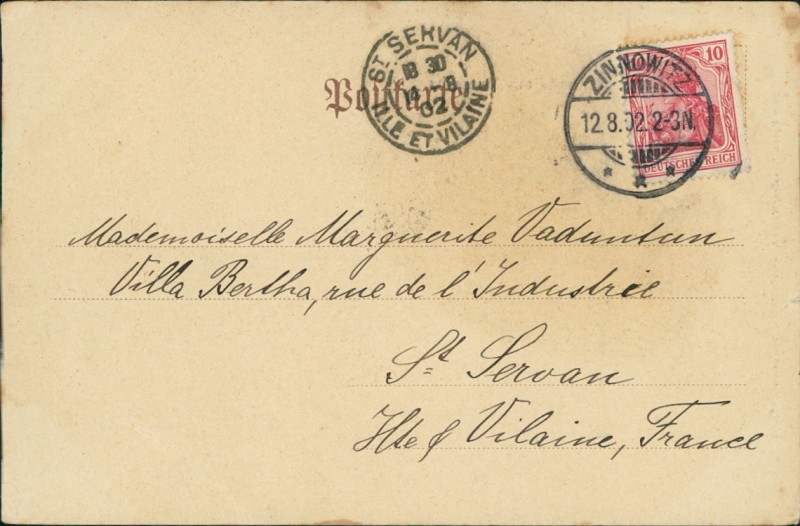 Postkarte
ST SERVAN
18 30
14 8
02
ILLE ET VILAINE
ZINNOWITZ
12.8.02.2-3N.
10
DEUTSCHES REICH
Mademoiselle Marguerite Vaduntun
Villa Bertha, rue de l'Industrie
St Servan
Ille & Vilaine, France